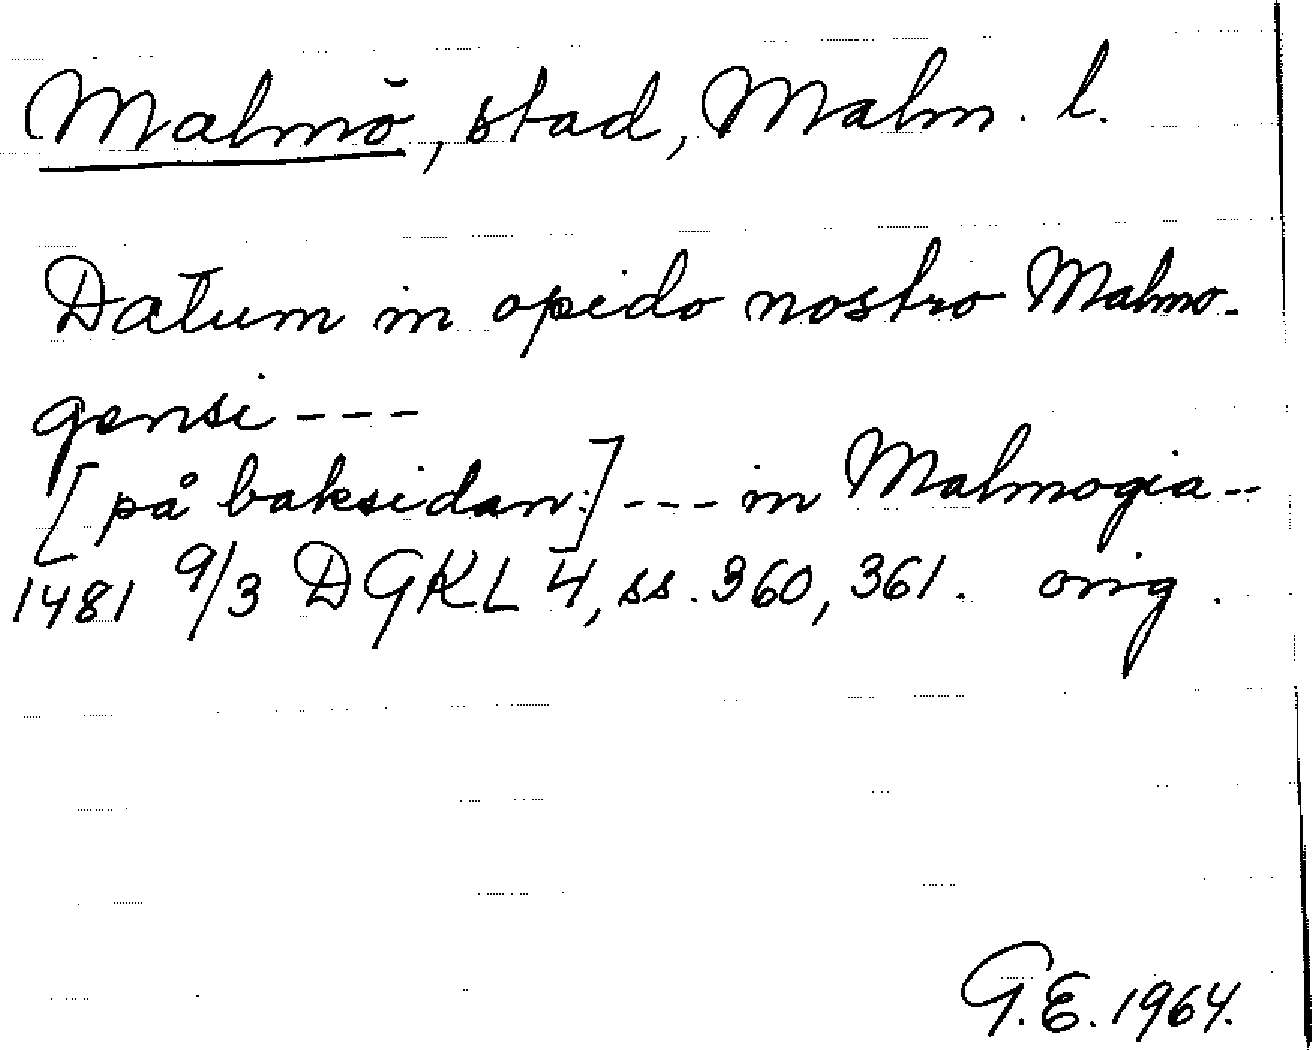 Malmö, stad, Malm. l.
Datum in opido nostro Malmo-
gensi ---
[på baksidan:] --- in Malmogia --
1481 9/3 DGKL 4, ss. 360, 361. orig.
G.E. 1964.